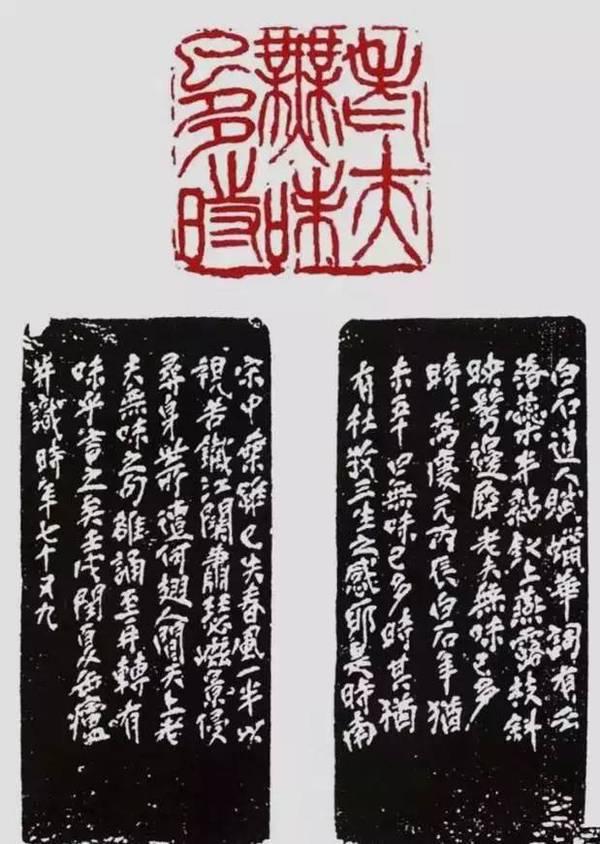 老夫
無味
已多時
白石道人賦蠟華詞有云
落蘂半黏釵上燕露枝斜
映鬢邊犀老夫無味已多
時時爲慶元丙辰白石年猶
未五十曰無味已多時其猶
有杜牧三生之感耶是時南
宋中葉雖已失春風一半以
視苦鐵江關蕭瑟崦景侵
尋身世所遭何翅人間天上老
夫無味之句雒誦至再轉有
味乎言之矣壬戌閏夏缶廬
并識時年七十又九